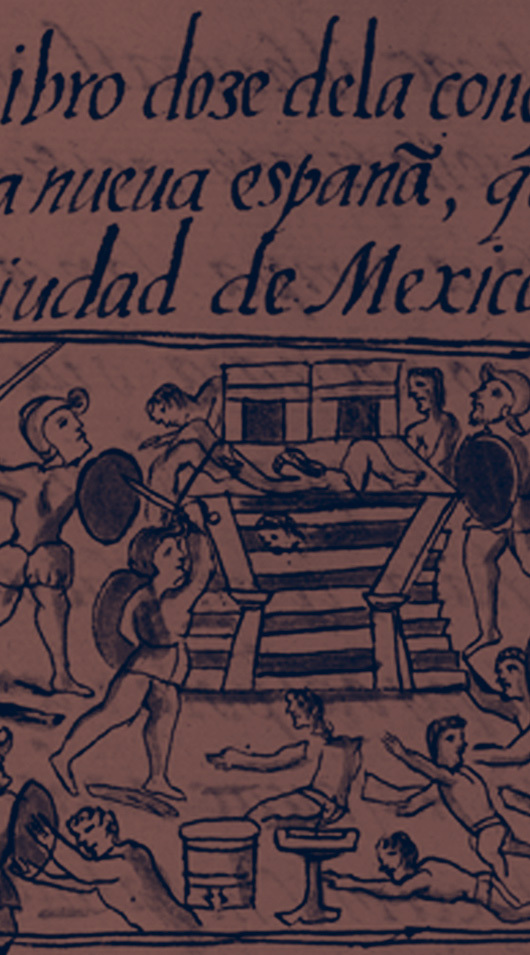 ibro doze dela con
a nueua españa, q
iudad de Mexic